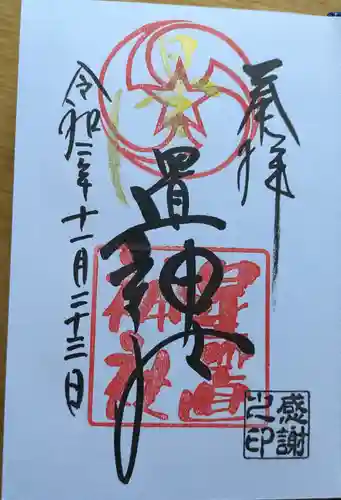 奉拝
置神社
令和二年十一月二十三日
星置
神社
感謝
之印